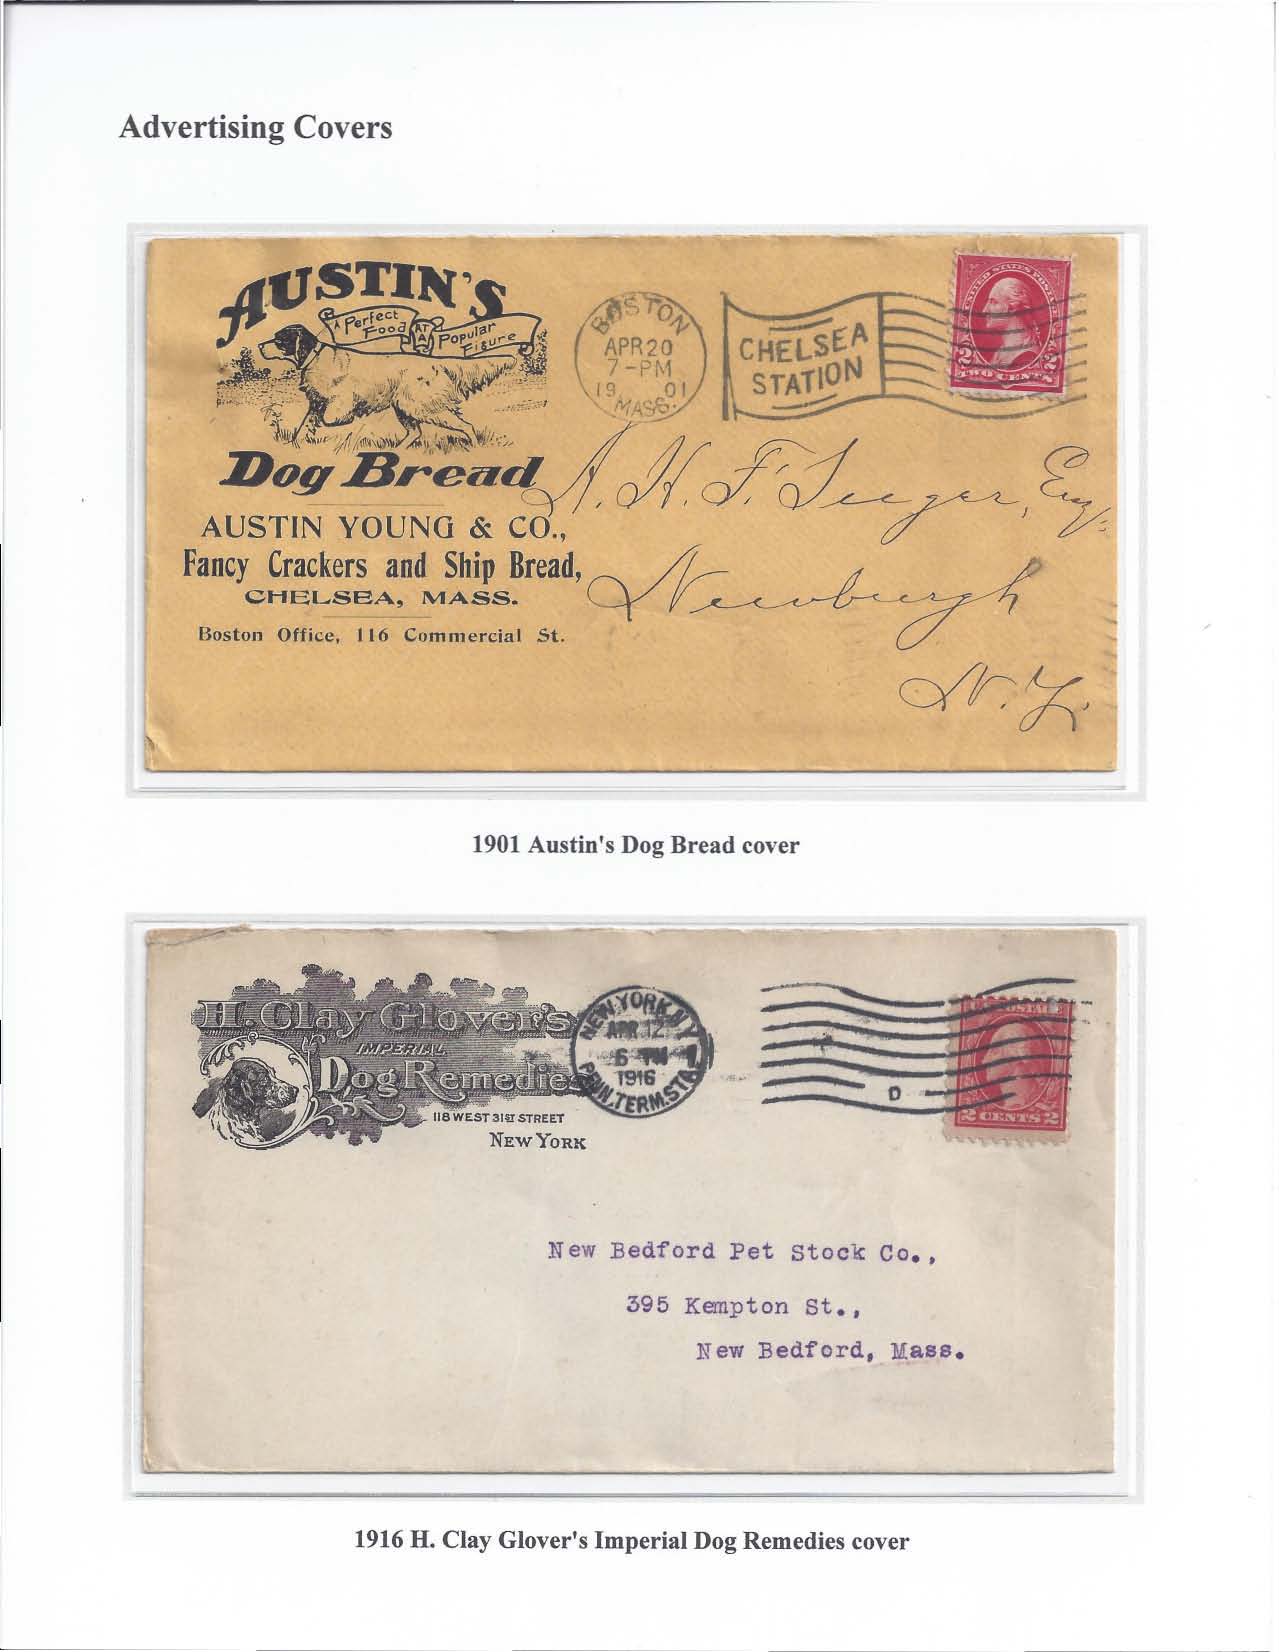 Advertising Covers
AUSTIN'S
A Perfect Food AT A Popular Figure
Dog Bread
AUSTIN YOUNG & CO.,
Fancy Crackers and Ship Bread,
CHELSEA, MASS.
Boston Office, 116 Commercial St.
BOSTON
APR 20
7-PM
19 01
MASS.
CHELSEA
STATION
UNITED STATES POSTAGE
2 2
TWO CENTS
A. H. F. Seeger, Esq.
Newburgh
N.Y.
1901 Austin's Dog Bread cover
H. Clay Glover's
IMPERIAL
Dog Remedies
118 WEST 31ST STREET
NEW YORK
NEW YORK, N.Y.
APR 12
6 PM
1916
PENN. TERM. STA.
D
2 CENTS 2
New Bedford Pet Stock Co.,
395 Kempton St.,
New Bedford, Mass.
1916 H. Clay Glover's Imperial Dog Remedies cover